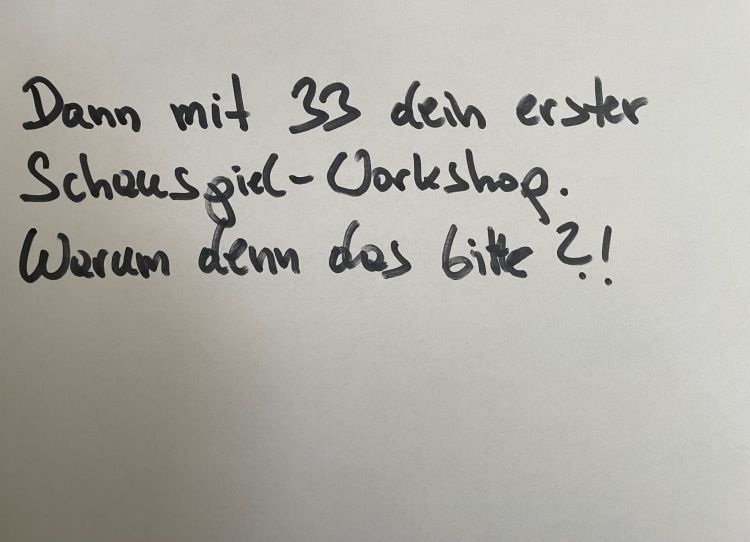 Dann mit 33 dein erster
Schauspiel-Workshop.
Warum denn das bitte?!